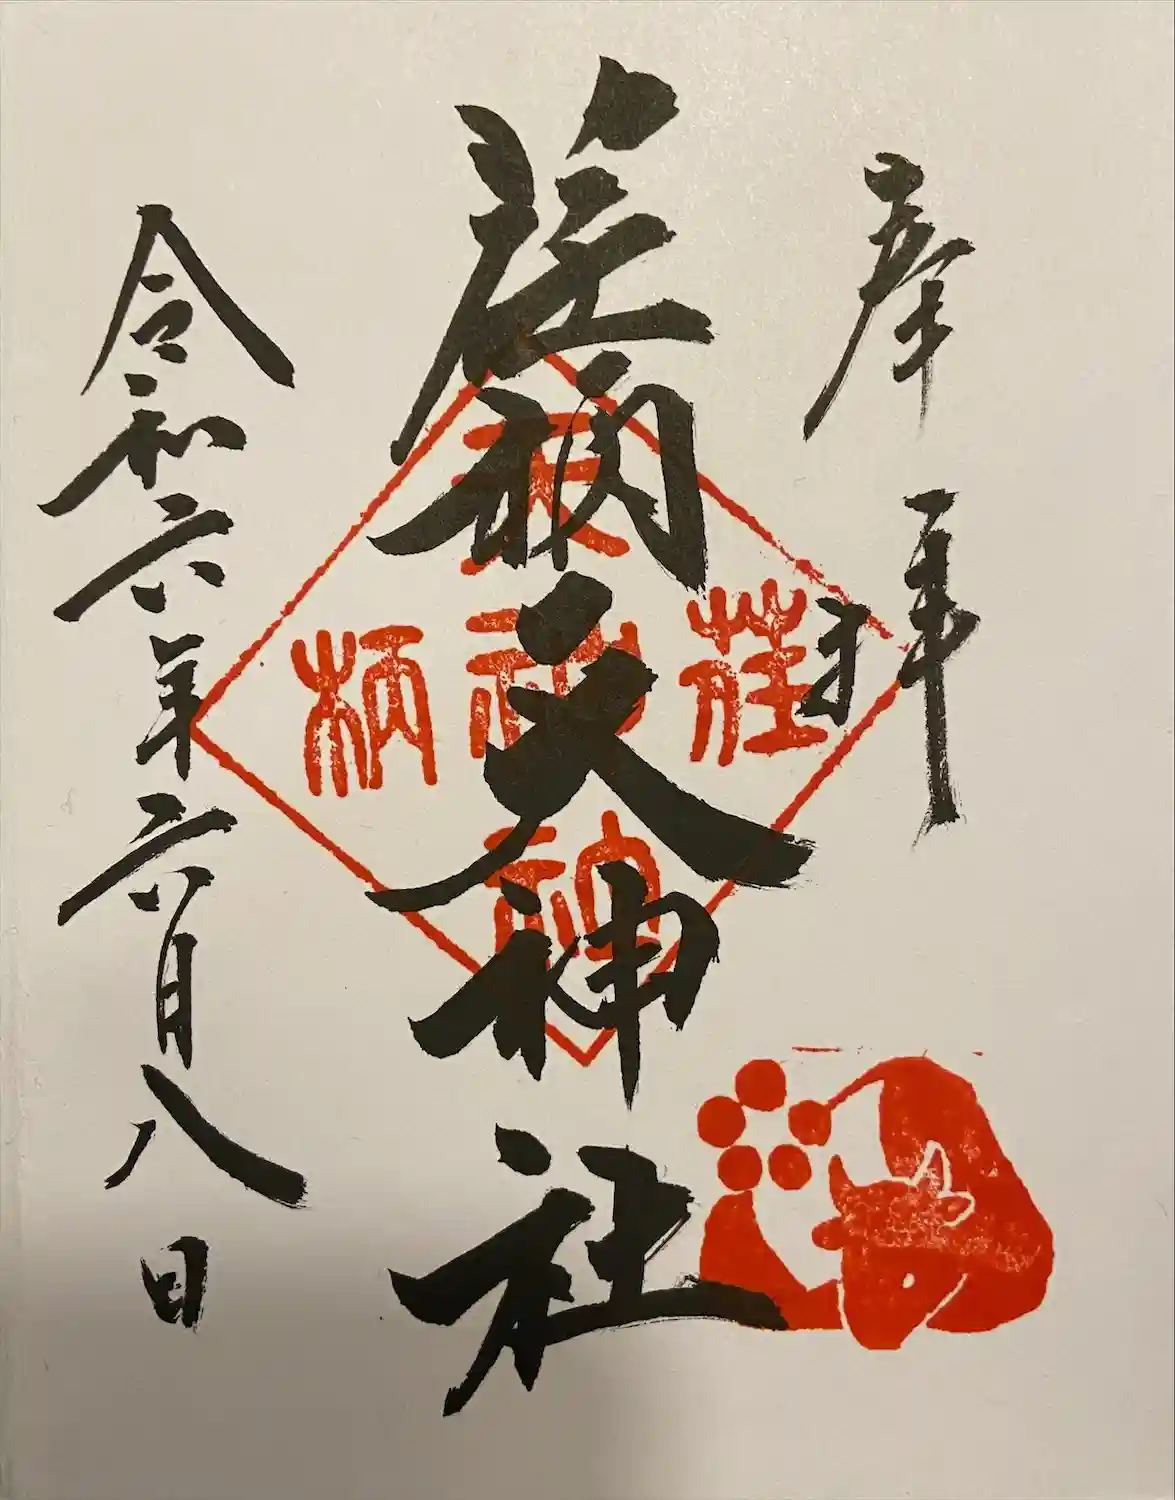 奉拝
荏柄天神社
荏柄天神社
令和六年六月八日